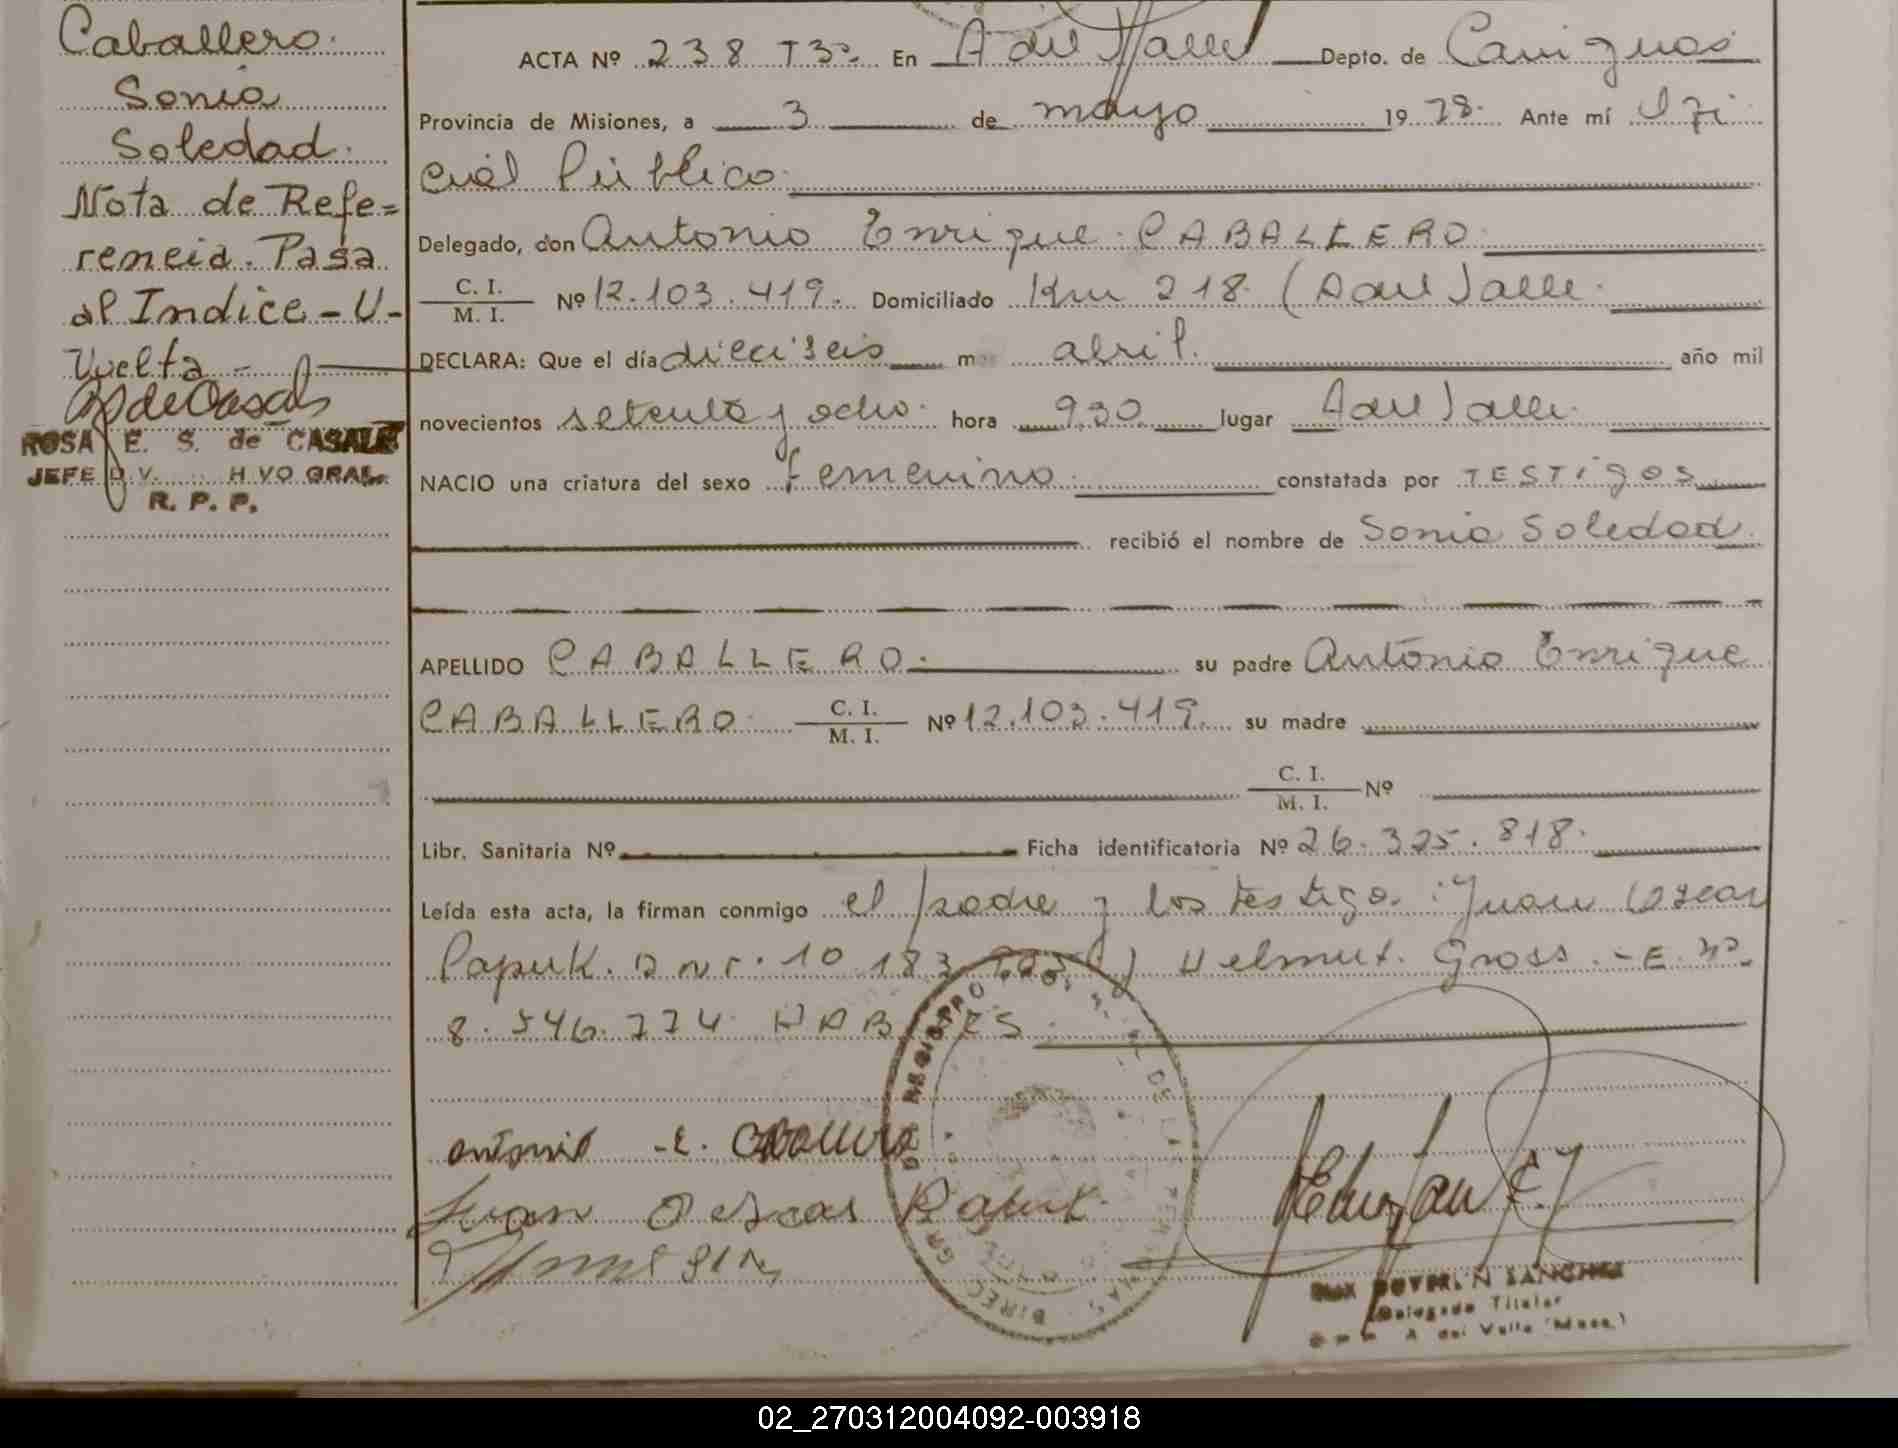 Caballero.
Sonia
Soledad.
Nota de Refe=
rencia. Pasa
al Indice - U -
Vuelta -
ROSA E. S. de CASALE
JEFE
R. P. P.
ACTA Nº 238 T3º En A del Valle Depto. de Cainguas
Provincia de Misiones, a 3 de mayo 1978. Ante mí Ofi
cial Público.
Delegado, don Antonio Enrique CABALLERO
C. I. / M. I. Nº 12.103.419. Domiciliado Km 218 (A del Valle.
DECLARA: Que el día dieciseis m abril. año mil
novecientos setenta y ocho. hora 9.30 lugar A del Valle.
NACIO una criatura del sexo femenino. constatada por TESTigos
recibió el nombre de Sonia Soledad.
APELLIDO CABALLERO. su padre Antonio Enrique
CABALLERO C. I. / M. I. Nº 12.103.419. su madre
C. I. / M. I. Nº
Libr. Sanitaria Nº Ficha identificatoria Nº 26.325.818.
Leída esta acta, la firman conmigo el padre y los testigo. Juan Oscar
Papuk. D N I. 10 183 y Helmut. Gross. - E. Nº
8.546.774 HABILES.
Antonio E. Caballero
Juan Oscar Papuk.
SANCHEZ
Delegado Titular
A del Valle (Mnes.)
02_270312004092-003918